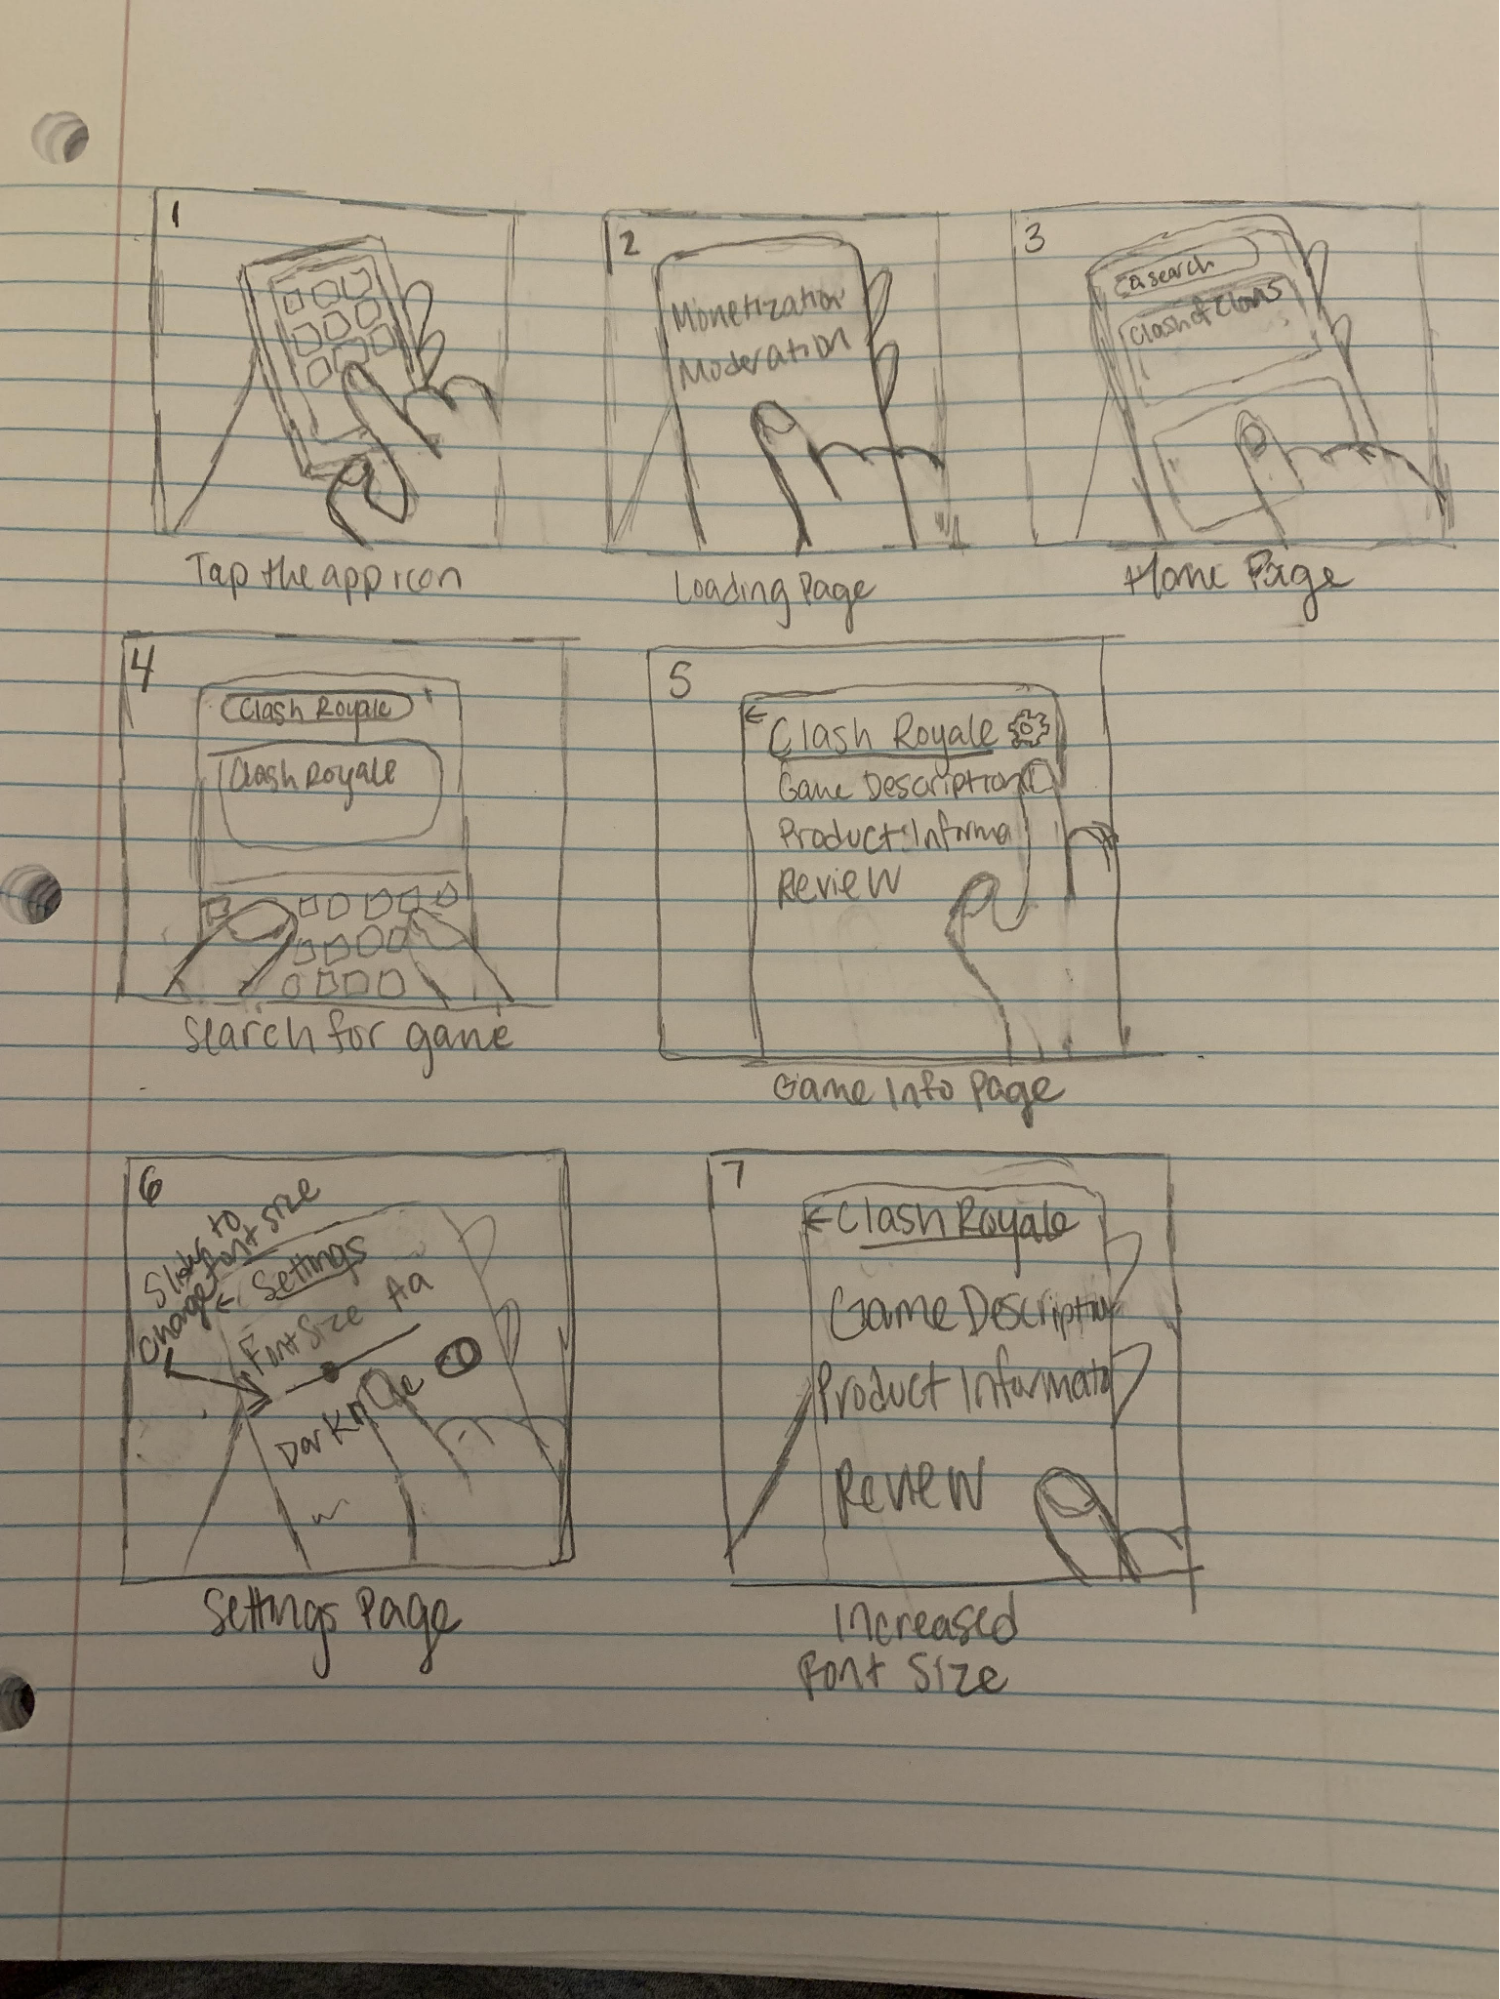 1
Tap the app icon
2
Monetization
Moderation
Loading Page
3
search
Clash of Clans
Home Page
4
Clash Royale
Clash Royale
Search for game
5
← Clash Royale
Game Description
Product Informa
Review
Game Info Page
6
Slider to
change font size
← Settings
Font Size Aa
Dark m
Settings Page
7
← Clash Royale
Game Description
Product Informat
Review
Increased
Font Size